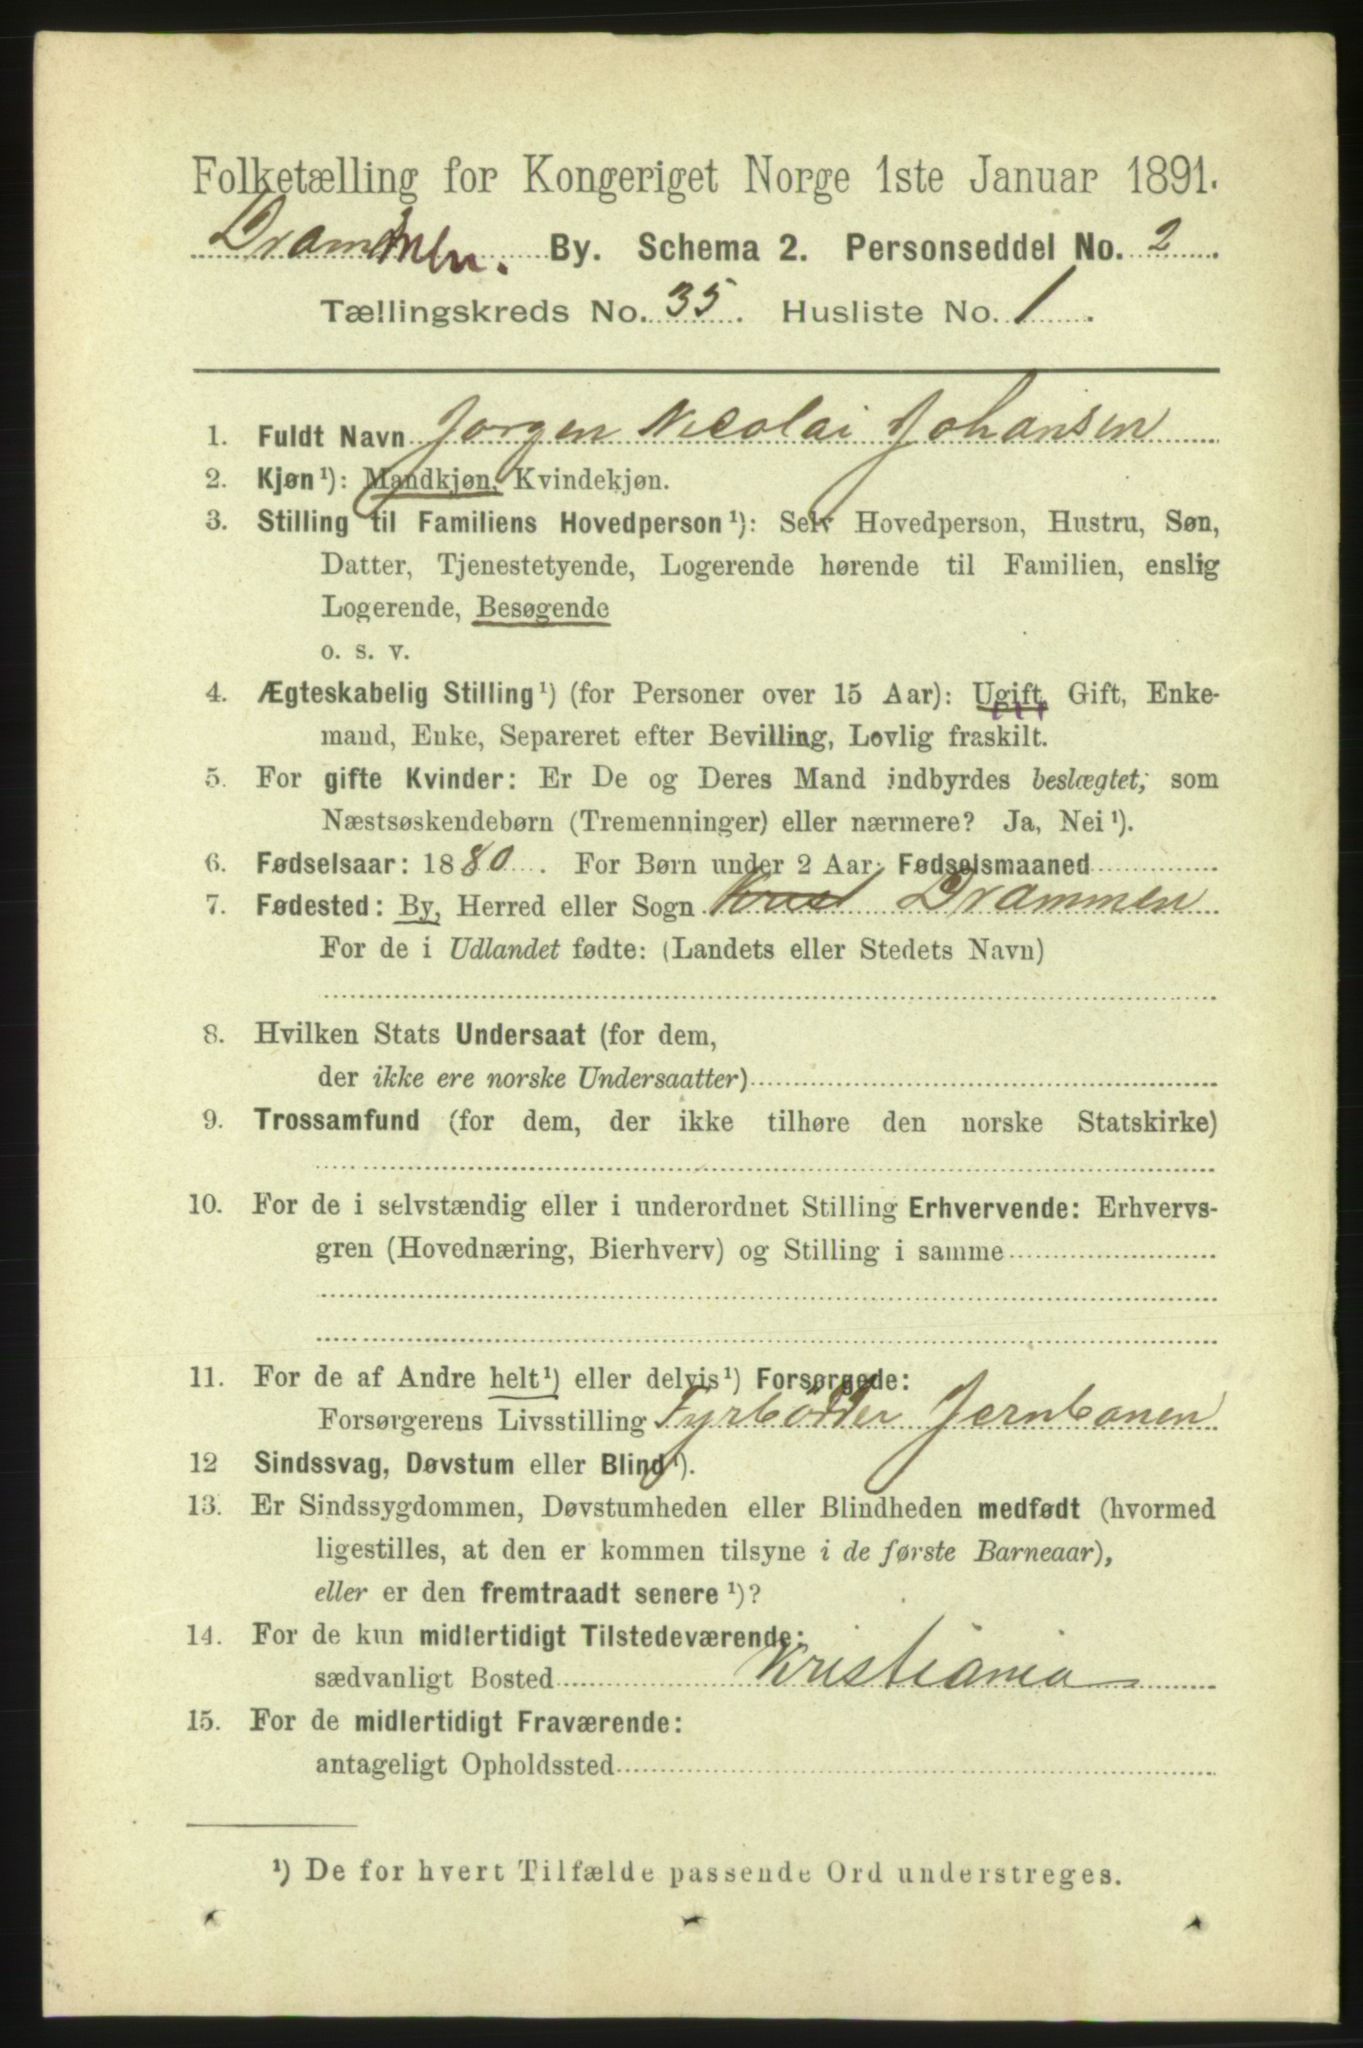 Folketælling for Kongeriget Norge 1ste Januar 1891.
Drammen. By. Schema 2. Personseddel No. 2
Tællingskreds No. 35. Husliste No. 1.
1. Fuldt Navn Jorgen Nicolai Johansen
2. Kjøn¹): Mandkjøn, Kvindekjøn.
3. Stilling til Familiens Hovedperson¹): Selv Hovedperson, Hustru, Søn,
Datter, Tjenestetyende, Logerende hørende til Familien, enslig
Logerende, Besøgende
o. s. v.
4. Ægteskabelig Stilling¹) (for Personer over 15 Aar): Ugift, Gift, Enke-
mand, Enke, Separeret efter Bevilling, Lovlig fraskilt.
5. For gifte Kvinder: Er De og Deres Mand indbyrdes beslægtet, som
Næstsøskendebørn (Tremenninger) eller nærmere? Ja, Nei¹).
6. Fødselsaar: 1880. For Børn under 2 Aar: Fødselsmaaned
7. Fødested: By, Herred eller Sogn Drammen
For de i Udlandet fødte: (Landets eller Stedets Navn)
8. Hvilken Stats Undersaat (for dem,
der ikke ere norske Undersaatter)
9. Trossamfund (for dem, der ikke tilhøre den norske Statskirke)
10. For de i selvstændig eller i underordnet Stilling Erhvervende: Erhvervs-
gren (Hovednæring, Bierhverv) og Stilling i samme
11. For de af Andre helt¹) eller delvis¹) Forsørgede:
Forsørgerens Livsstilling Fyrbödder Jernbanen
12 Sindssvag, Døvstum eller Blind¹).
13. Er Sindssygdommen, Døvstumheden eller Blindheden medfødt (hvormed
ligestilles, at den er kommen tilsyne i de første Barneaar),
eller er den fremtraadt senere¹)?
14. For de kun midlertidigt Tilstedeværende:
sædvanligt Bosted Kristiania
15. For de midlertidigt Fraværende:
antageligt Opholdssted
¹) De for hvert Tilfælde passende Ord understreges.